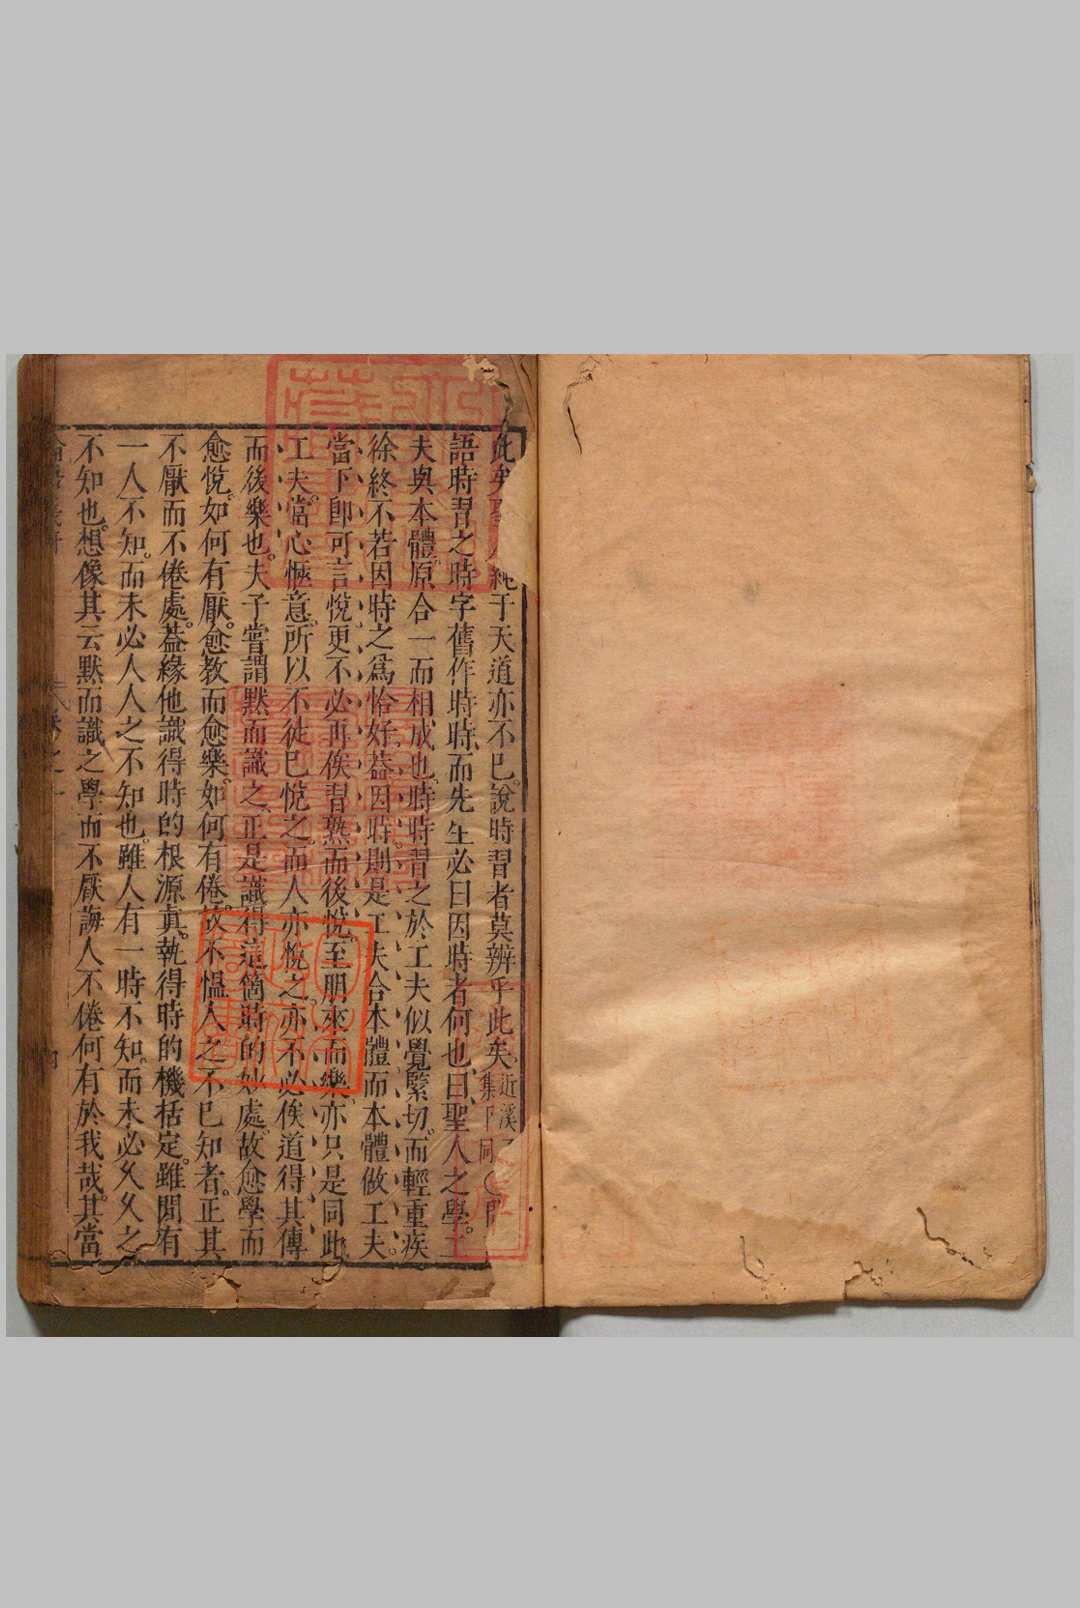 此矣聖人純于天道亦不已說時習者莫辨乎此矣近溪子集下同○問
語時習之時字舊作時時而先生必曰因時者何也曰聖人之學工
夫與本體原合一而相成也時時習之於工夫似覺緊切而輕重疾
徐終不若因時之爲恰好蓋因時則是工夫合本體而本體做工夫
當下卽可言悅更不必再俟習熟而後悅至朋來而樂亦只是同此
工夫當心愜意所以不徒已悅之而人亦悅之亦不必俟道得其傳
而後樂也夫子嘗謂默而識之正是識得這箇時的妙處故愈學而
愈悅如何有厭愈教而愈樂如何有倦故不慍人之不已知者正其
不厭而不倦處蓋緣他識得時的根源眞執得時的機括定雖間有
一人不知而未必人人之不知也雖人有一時不知而未必久久之
不知也想像其云默而識之學而不厭誨人不倦何有於我哉其當
卷之一